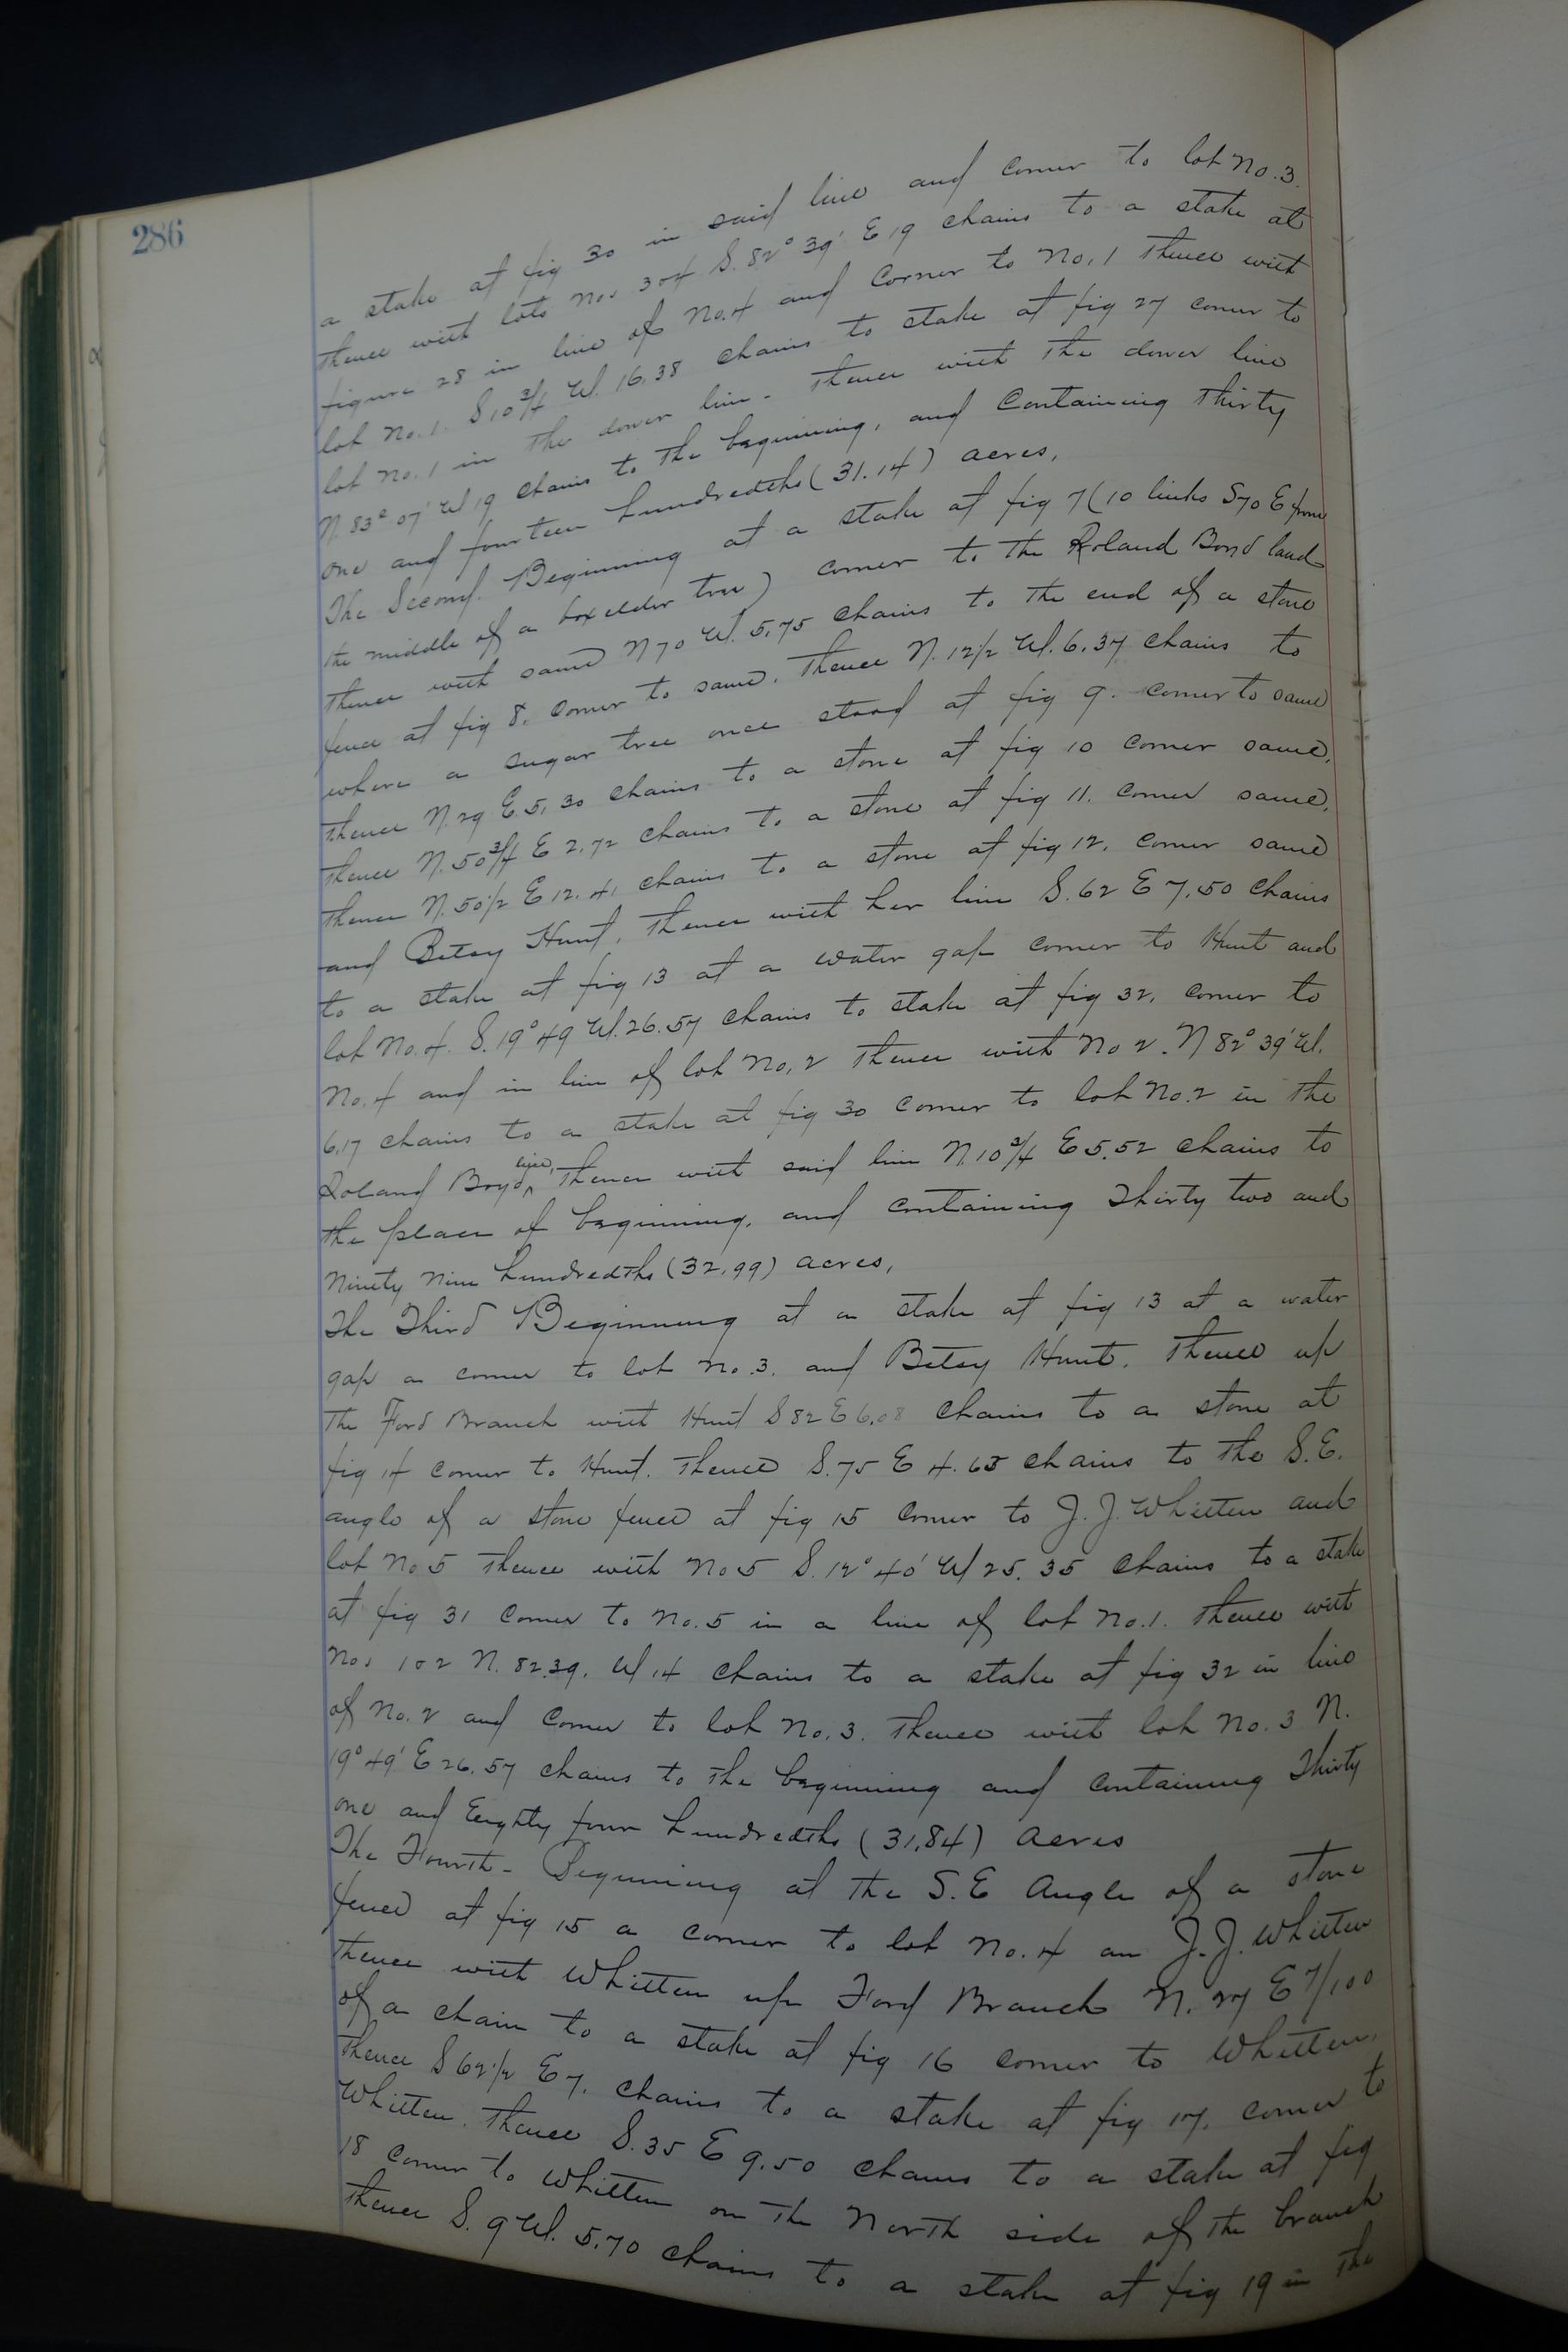 286
a stake at fig 30 in said line and corner to lot No. 3.
Thence with lots Nos 3 & 4 S. 82° 39' E 19 chains to a stake at
figure 28 in line of No. 4 and Corner to No. 1 Thence with
lot No. 1. S 10 3/4 W. 16.38 chains to stake at fig 27 corner to
lot No. 1 in the dower line. Thence with the dower line
N. 83° 07' W 19 chains to the beginning, and Containing Thirty
one and fourteen hundredths (31.14) acres.
The Second. Beginning at a stake at fig 7 (10 links S 70 E from
the middle of a box elder tree) corner to the Roland Bond land
Thence with same N 70 W. 5.75 chains to the end of a stone
fence at fig 8. Corner to same. Thence N. 12 1/2 W. 6.37 chains to
where a sugar tree once stood at fig 9. corner to same
Thence N. 29 E. 5.30 chains to a stone at fig 10 corner same.
Thence N. 50 3/4 E 2.72 chains to a stone at fig 11. corner same.
Thence N. 50 1/2 E 12.41 chains to a stone at fig 12. corner same
and Betsy Hunt. Thence with her line S. 62 E 7.50 chains
to a stake at fig 13 at a water gap corner to Hunt and
lot No. 4. S. 19° 49 W. 26.57 chains to stake at fig 32. corner to
No. 4 and in line of lot No. 2 Thence with No 2. N 82° 39' W.
6.17 chains to a stake at fig 30 corner to lot No. 2 in the
Roland Boyd line, Thence with said line N. 10 3/4 E 5.52 chains to
the place of beginning. and containing Thirty two and
Ninety Nine hundredths (32.99) acres.
The Third Beginning at a stake at fig 13 at a water
gap a corner to lot No. 3. and Betsy Hunt. Thence up
The Ford Branch with Hunt S 82 E 6.08 chains to a stone at
fig 14 corner to Hunt. Thence S. 75 E 4.65 chains to the S.E.
angle of a stone fence at fig 15 corner to J. J. Whitten and
lot No 5 Thence with No 5 S. 12° 40' W 25.35 chains to a stake
at fig 31 corner to No. 5 in a line of lot No. 1. Thence with
Nos 1 & 2 N. 82.39. W 14 chains to a stake at fig 32 in line
of No. 2 and Corner to lot No. 3. Thence with lot No. 3 N.
19° 49' E 26.57 chains to the beginning and Containing Thirty
one and Eeighty four hundredths (31.84) acres
The Fourth - Beginning at the S. E Angle of a stone
fence at fig 15 a corner to lot No. 4 an J. J. Whitten
Thence with Whitten up Ford Branch N. 27 E 7/100
of a chain to a stake at fig 16 corner to Whitten.
Thence S 62 1/2 E 7. chains to a stake at fig 17. corner to
Whitten. Thence S. 35 E 9.50 chains to a stake at fig
18 corner to Whitten on the North side of the branch
Thence S. 9 W. 5.70 chains to a stake at fig 19 in the